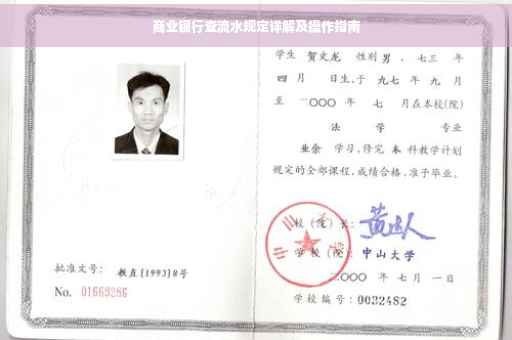 商业银行查流水规定详解及操作指南
学生 贺文龙 性别 男，七三 年
四月 日生，于 九七 年 九 月
至 二〇〇〇 年 七 月在本校(院)
法 学 专业
业余 学习，修完 本 科教学计划
规定的全部课程，成绩合格，准予毕业。
校（院）长：
学校（院）：中山大学
二〇〇〇 年 七 月 一 日
学校编号：0032482
批准文号：教直[1993]8号
No. 01669286